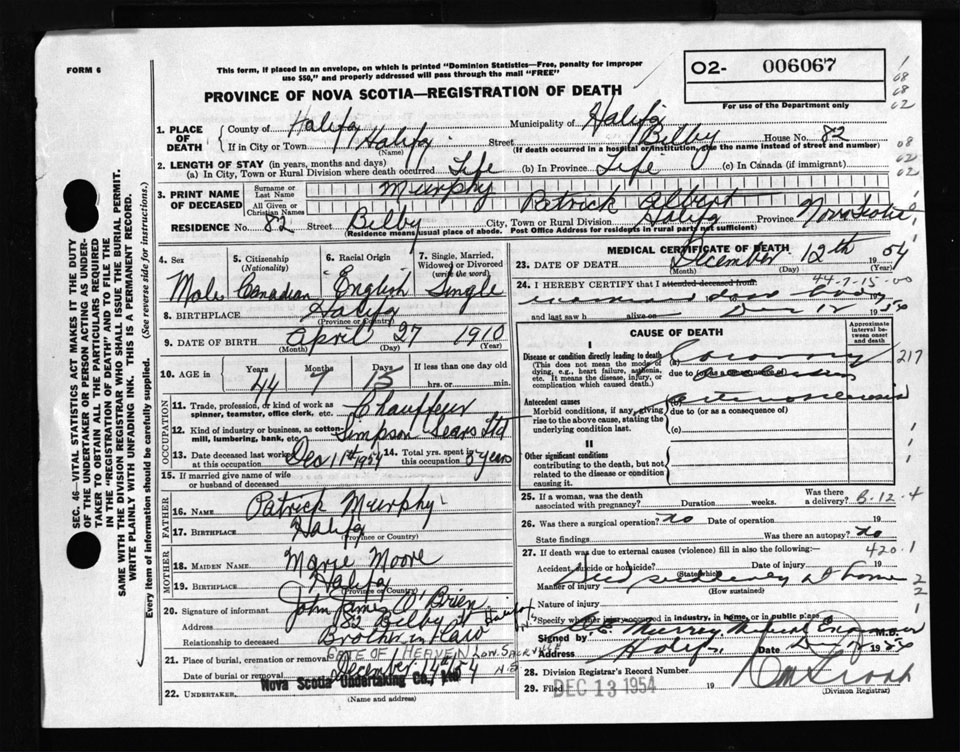 FORM 6
This form, if placed in an envelope, on which is printed "Dominion Statistics—Free, penalty for improper
use $50," and properly addressed will pass through the mail "FREE"
O2- 006067
For use of the Department only
PROVINCE OF NOVA SCOTIA—REGISTRATION OF DEATH
1. PLACE OF DEATH
County of Halifax Municipality of Halifax
If in City or Town Halifax Street Bilby House No. 82
(Name) (If death occurred in a hospital or institution, give the name instead of street and number)
2. LENGTH OF STAY (in years, months and days)
(a) In City, Town or Rural Division where death occurred Life (b) In Province Life (c) In Canada (if immigrant)
3. PRINT NAME OF DECEASED
Surname or Last Name Murphy
All Given or Christian Names Patrick Albert
RESIDENCE No. 82 Street Bilby City, Town or Rural Division Halifax Province Nova Scotia
(Residence means usual place of abode. Post Office Address for residents in rural parts not sufficient)
4. Sex Male
5. Citizenship (Nationality) Canadian
6. Racial Origin English
7. Single, Married, Widowed or Divorced (write the word) Single
8. BIRTHPLACE Halifax
(Province or Country)
9. DATE OF BIRTH April 27 1910
(Month) (Day) (Year)
10. AGE in Years 44 Months 7 Days 15 If less than one day old
hrs. or min.
OCCUPATION
11. Trade, profession, or kind of work as spinner, teamster, office clerk, etc. Chauffeur
12. Kind of industry or business, as cotton mill, lumbering, bank, etc. Simpson Sears Ltd
13. Date deceased last worked at this occupation Dec 11th 1954
14. Total yrs. spent in this occupation 5 years
15. If married give name of wife or husband of deceased
FATHER
16. NAME Patrick Murphy
17. BIRTHPLACE Halifax
(Province or Country)
MOTHER
18. MAIDEN NAME Marie Moore
19. BIRTHPLACE Halifax
(Province or Country)
20. Signature of informant John James O'Brien
Address 82 Bilby St Halifax
Relationship to deceased Brother in law
21. Place of burial, cremation or removal GATE OF HEAVEN LOW. SACKVILLE
Date of burial or removal December 14th 54 N.S
22. UNDERTAKER. Nova Scotia Undertaking Co., Ltd
(Name and address)
MEDICAL CERTIFICATE OF DEATH
23. DATE OF DEATH December 12th 1954
(Month) (Day) (Year)
24. I HEREBY CERTIFY that I attended deceased from 44-7-15-00
and last saw h alive on Dec 12 1954
CAUSE OF DEATH
Approximate interval between onset and death
I
Disease or condition directly leading to death (a) Coronary 217
(This does not mean the mode of dying, e.g., heart failure, asthenia, etc. It means the disease, injury, or complication which caused death.)
due to (or as a consequence of)
Antecedent causes (b) Arteriosclerosis
Morbid conditions, if any, giving rise to the above cause, stating the underlying condition last.
due to (or as a consequence of)
(c)
II
Other significant conditions
contributing to the death, but not related to the disease or condition causing it.
25. If a woman, was the death associated with pregnancy? Duration weeks. Was there a delivery? B-12-4
26. Was there a surgical operation? no Date of operation 19
State findings Was there an autopsy? no
27. If death was due to external causes (violence) fill in also the following:— 420.1
Accident, suicide or homicide? Date of injury 19
(State which)
Manner of injury died suddenly at home
(How sustained)
Nature of injury
Specify whether injury occurred in industry, in home, or in public place
Signed by Murray Medical Examiner M.D.
Address Halifax Date 1954
28. Division Registrar's Record Number
29. Filed DEC 13 1954 19
(Division Registrar)
SEC. 46—VITAL STATISTICS ACT MAKES IT THE DUTY
OF THE UNDERTAKER OR PERSON ACTING AS UNDER-
TAKER TO OBTAIN ALL THE PARTICULARS REQUIRED
IN THE "REGISTRATION OF DEATH" AND TO FILE THE
SAME WITH THE DIVISION REGISTRAR WHO SHALL ISSUE THE BURIAL PERMIT.
WRITE PLAINLY WITH UNFADING INK. THIS IS A PERMANENT RECORD.
Every item of information should be carefully supplied. (See reverse side for instructions.)